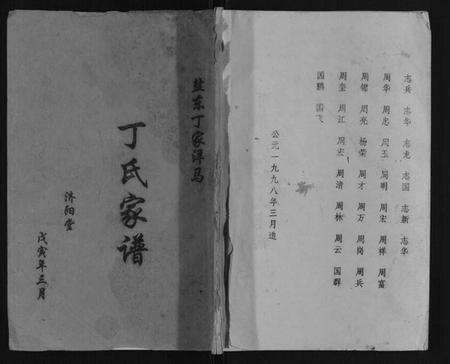 盐东丁家洋马
丁氏家谱
济阳堂
戊寅年三月
志兵 志华 志龙 志国 志新 志华
周华 周忠 周玉 周明 周宏 周祥 周富
周健 周亮 杨荣 周才 周万 周岗 周兵
周奎 周江 周宏 周清 周林 周云 国群
国鹏 国飞
公元一九九八年三月造